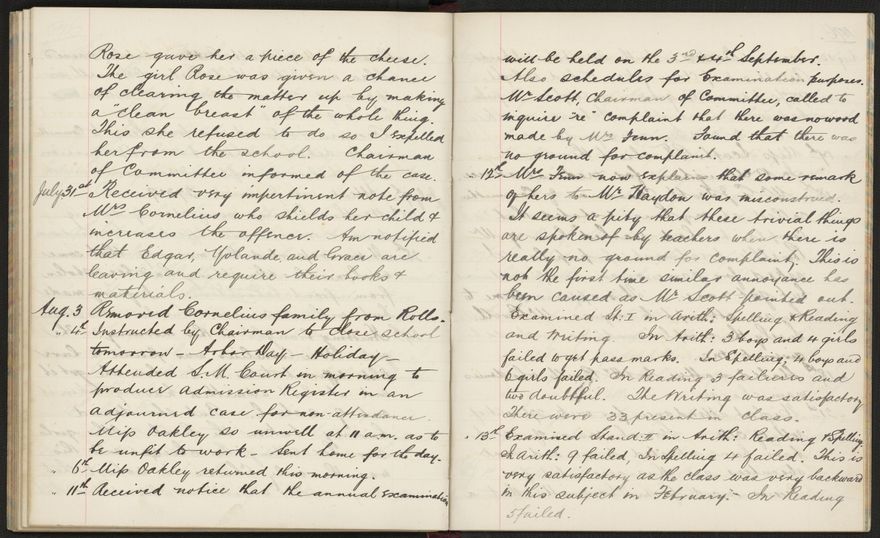 Rose gave her a piece of the cheese.
The girl Rose was given a chance
of clearing the matter up by making
a "clean breast" of the whole thing.
This she refused to do so I expelled
her from the school. Chairman
of Committee informed of the case.
July 31st Received very impertinent note from
Mrs Cornelius, who shields her child &
increases the offence. Am notified
that Edgar, Yolande, and Grace are
leaving and require their books &
materials.
Aug. 3 Removed Cornelius family from Rolls.
" 4th Instructed by Chairman to close school
tomorrow - Arbor Day - Holiday -
Attended S.M. Court in morning to
produce Admission Register in an
adjourned case for non-attendance.
Miss Oakley so unwell at 11 a.m. as to
be unfit to work - Sent home for the day.
" 6th Miss Oakley returned this morning.
" 11th Received notice that the annual examination
will be held on the 3rd & 4th September.
Also schedules for Examination purposes.
Mr Scott, Chairman of Committee, called to
inquire "re" complaint that there was no wood
made by Mrs Fenn. Found that there was
no ground for complaint.
" 12th Mrs Fenn now explains that some remark
of hers to Mr Haydon was misconstrued.
It seems a pity that these trivial things
are spoken of by teachers when there is
really no ground for complaint. This is
not the first time similar annoyance has
been caused as Mr Scott pointed out.
Examined St: I in Arith: Spelling & Reading
and Writing. In Arith: 3 boys and 4 girls
failed to get pass marks. In Spelling: 4 boys and
6 girls failed. In Reading 3 failures and
two doubtful. The Writing was satisfactory
There were 33 present in class.
" 13th Examined Stand: II in Arith: Reading & Spelling.
In Arith: 9 failed, In Spelling 4 failed. This is
very satisfactory as the class was very backward
in this subject in February. - In Reading
5 failed.